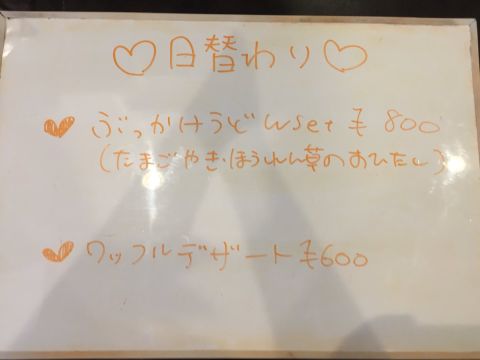 ♡日替わり♡
♥ ぶっかけうどんset ¥800
(たまごやき・ほうれん草のおひたし)
♥ ワッフルデザート ¥600